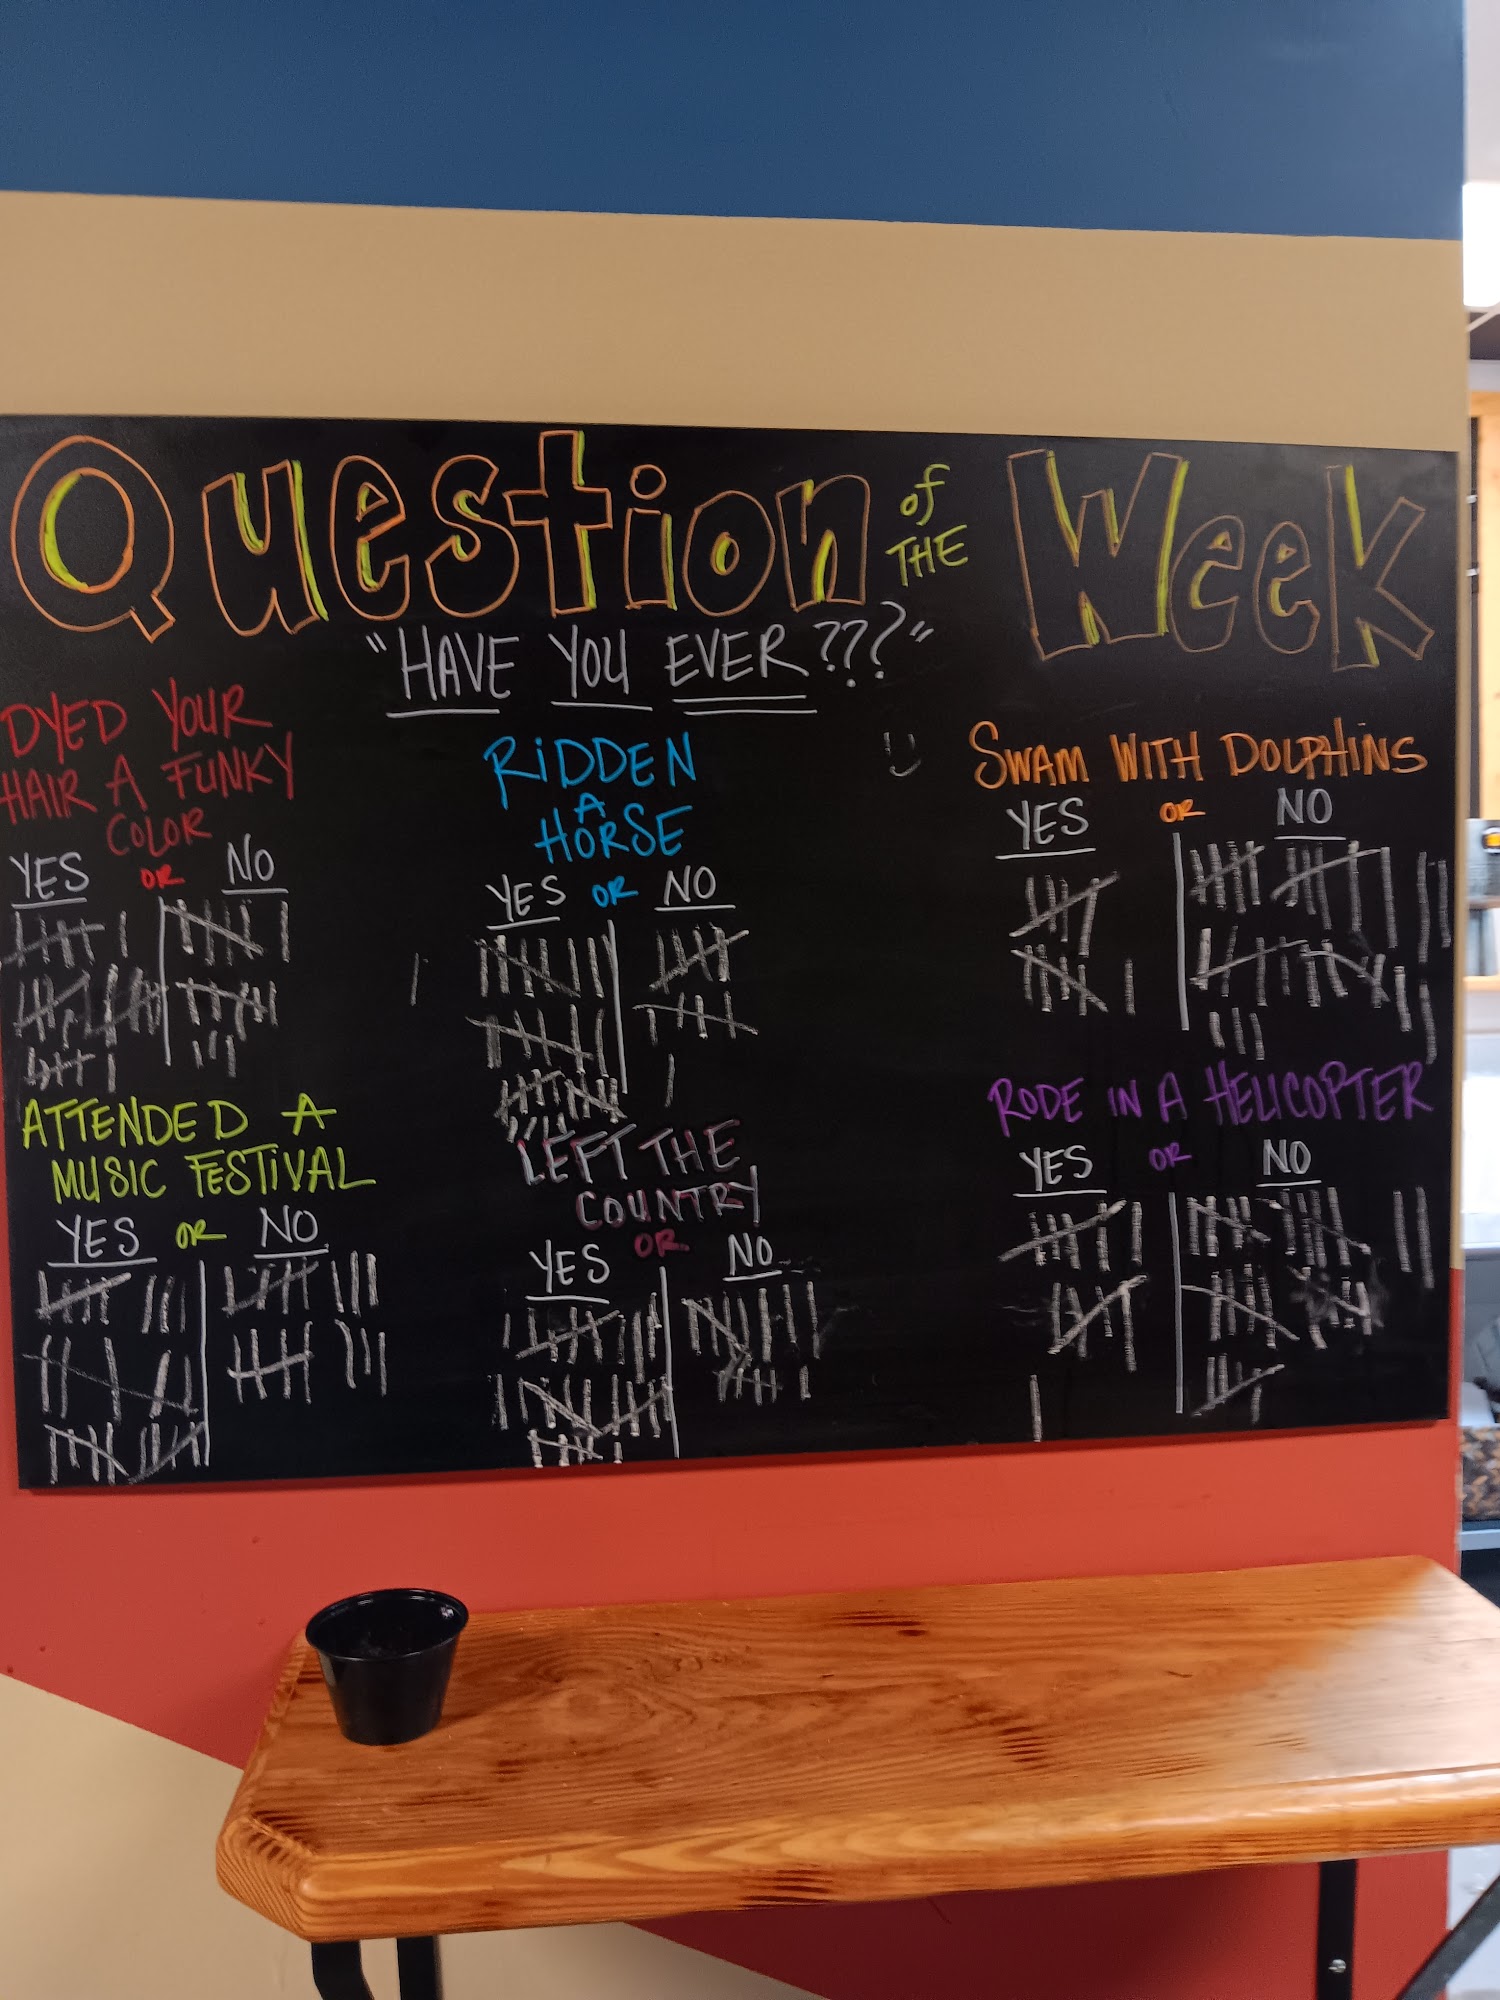 Question of THE Week
"HAVE YOU EVER???"
DYED YOUR
HAIR A FUNKY
COLOR
YES OR NO
RIDDEN
A
HORSE
YES OR NO
SWAM WITH DOLPHINS
YES OR NO
ATTENDED A
MUSIC FESTIVAL
YES OR NO
LEFT THE
COUNTRY
YES OR NO
RODE IN A HELICOPTER
YES OR NO